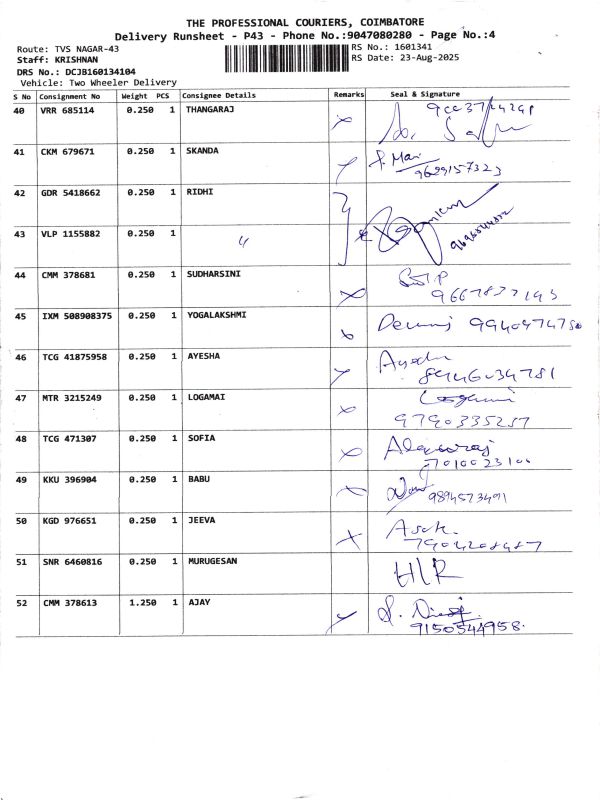 THE PROFESSIONAL COURIERS, COIMBATORE
Delivery Runsheet - P43 - Phone No.:9047080280 - Page No.:4
Route: TVS NAGAR-43
RS No.: 1601341
Staff: KRISHNAN
RS Date: 23-Aug-2025
DRS No.: DCJB160134104
Vehicle: Two Wheeler Delivery
S No Consignment No Weight PCS Consignee Details Remarks Seal & Signature
40 VRR 685114 0.250 1 THANGARAJ
41 CKM 679671 0.250 1 SKANDA
9629157323
42 GDR 5418662 0.250 1 RIDHI
43 VLP 1155882 0.250 1 "
44 CMM 378681 0.250 1 SUDHARSINI
45 IXM 508908375 0.250 1 YOGALAKSHMI
46 TCG 41875958 0.250 1 AYESHA
47 MTR 3215249 0.250 1 LOGAMAI
9790335257
48 TCG 471307 0.250 1 SOFIA
49 KKU 396904 0.250 1 BABU
9894573491
50 KGD 976651 0.250 1 JEEVA
51 SNR 6460816 0.250 1 MURUGESAN HLR
52 CMM 378613 1.250 1 AJAY
9150544958.